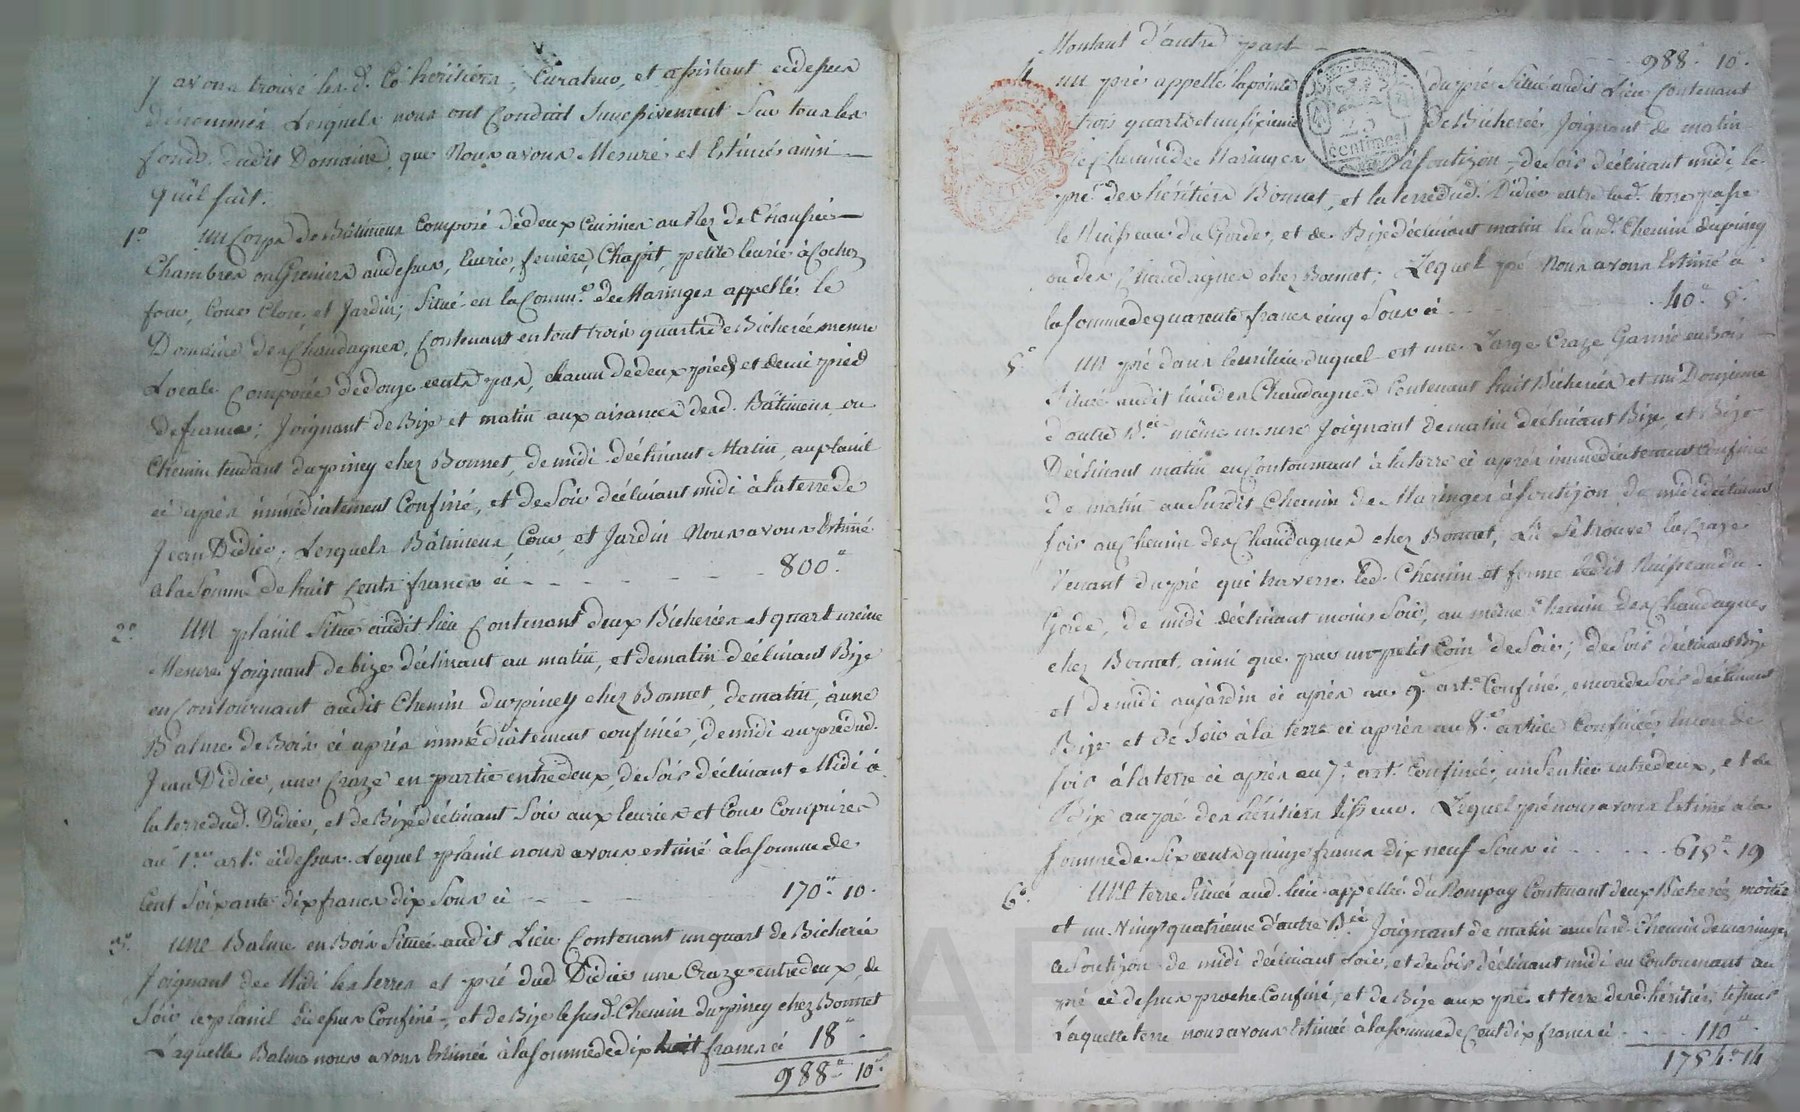 y avons trouvé les d. Co héritiers, Curateur, et assistant cidessus
dénommés, Lesquels nous ont Conduit Successivement Sur tous les
fonds dudit Domaine, que Nous avons Mesuré et Estimés ainsi
qu'il suit.
1.° un Corps de Bâtimens Composé de deux Cuisines au Rez de Chaussée
Chambres ou Greniers audessus, Ecurie, feniere, Chapit, petite Ecurie à Cochon
four, Cour Close, et Jardin; Situé en la Commune de Maringes appellé le
Domaine des Chaudagnes, Contenant en tout trois quarts de Bicherée mesure
Locale Composée de douze cents pas, chacun de deux pieds et demi pied
de france; Joignant de Bize et matin aux aisances desd. Bâtimens ou
Chemin tendant du piney chez Bonnet, de midi déclinant Matin, au planil
ci après immédiatement Confiné, et de Soir déclinant midi à la terre de
Jean Didier; Lesquels Bâtimens, Cour, et Jardin Nous avons Estimé
a la Somme de huit Cents francs ci - - - 800"
2.° UN planil Situé audit lieu Contenant deux Bicherées et quart même
Mesure Joignant de bize déclinant au matin, et de matin déclinant Bize
en Contournant audit Chemin du piney chez Bonnet, de matin, à une
Balme de Bois ci après immédiatement confinée, de midi au pré dud.
Jean Didier, une Craze en partie entredeux, de Soir déclinant Midi à
la terre dud. Didier, et de Bize déclinant Soir aux Ecuries et Cour Comprises
au 1.er art. cidessus. Lequel planil nous avons estimé à la Somme de
Cent Soixante dix francs dix Sous ci - - 170" 10.
3.° UNE Balme en Bois Située audit Lieu Contenant un quart de Bicherée
Joignant de Midi les terres et pré dud Didier une Craze entredeux, de
Soir le planil cidessus Confiné, et de Bize le susd. Chemin du piney chez Bonnet
Laquelle Balme nous avons Estimée à la Somme de dix huit francs ci 18"
988" 10s
Montant d'autre part - - 988" 10s
4 un pré appellé la pointe du pré Situé audit Lieu Contenant
trois quarts et un sixieme de Bicherée, Joignant de matin
le Chemin de Maringes à fontizon, de Soir déclinant midi, le
pré des héritiers Bonnet, et la terre dud. Didier entre lad. terre passe
le Ruisseau du Gorde, et de Bize déclinant matin le susd. Chemin du piney
ou des Chaudagnes chez Bonnet; Lequel pré Nous avons Estimé à
la Somme de quarante francs cinq Sous ci - - 40" 5s
5° UN pré dans le milieu duquel est une Large Craze Garnie en Bois
Situé audit lieu des Chaudagnes Contenant huit Bicherées et un Douzieme
d'autre B.ée même mesure Joignant de matin déclinant Bize, et Bize
Déclinant matin en Contournant à la terre ci après immédiatement Confinée
de matin au Susdit Chemin de Maringes à fontizon, de midi déclinant
soir au Chemin des Chaudagnes chez Bonnet, où Se trouve la Craze
Venant du pré que traverse led. Chemin et forme ledit Ruisseau du
Gorde, de midi déclinant moins Soir, au même Chemin des Chaudagnes
chez Bonnet, ainsi que par un petit Coin de Soir; de Soir déclinant Bize
et de midi au jardin ci après au 9.e art.e Confiné, encore de Soir déclinant
Bize et De Soir à la terre ci après au 8.e article Confinée, encore de
soir à la terre ci après au 7.e art. Confinée, un Sentier entredeux, et de
Bize au pré des héritiers. Lequel pré nous avons Estimé a la
Somme de Six cents quinze francs dix neuf Sous ci - - 615" 19
6° UNE terre Située aud. lieu appellée du Rompay Contenant deux Bicherées moitié
et un Vingt quatrieme d'autre B.ée Joignant de matin au susd. Chemin de maringes
a Fontizon de midi déclinant Soir, et de Soir déclinant midi en Contournant au
pré ci dessus proche Confiné, et de Bize aux pré et terre desd. héritiers
Laquelle terre nous avons Estimée à la Somme de Cent dix francs ci - - 110"
1754" 14
25
centimes